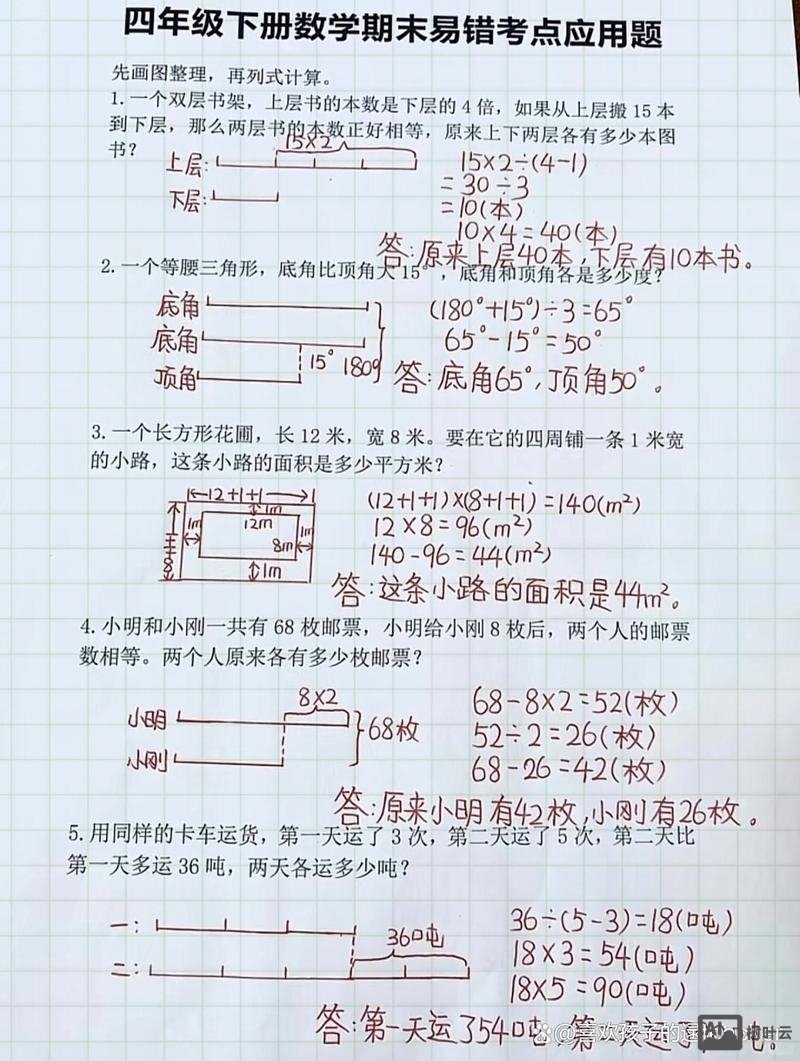 四年级下册数学期末易错考点应用题
先画图整理，再列式计算。
1.一个双层书架，上层书的本数是下层的4倍，如果从上层搬15本
到下层，那么两层书的本数正好相等，原来上下两层各有多少本图
书？
15×2
上层:
下层:
15×2÷(4-1)
=30÷3
=10(本)
10×4=40(本)
答:原来上层40本,下层有10本书。
2.一个等腰三角形，底角比顶角大15°，底角和顶角各是多少度？
底角
底角
顶角
15°
180°
(180°+15°)÷3=65°
65°-15°=50°
答:底角65°,顶角50°。
3.一个长方形花圃，长12米，宽8米。要在它的四周铺一条1米宽
的小路，这条小路的面积是多少平方米？
12+1+1
1m
12m
1m
1m
8m
1m
(12+1+1)×(8+1+1)=140(m²)
12×8=96(m²)
140-96=44(m²)
答:这条小路的面积是44m²。
4.小明和小刚一共有68枚邮票，小明给小刚8枚后，两个人的邮票
数相等。两个人原来各有多少枚邮票？
8×2
小明
小刚
68枚
68-8×2=52(枚)
52÷2=26(枚)
68-26=42(枚)
答:原来小明有42枚,小刚有26枚。
5.用同样的卡车运货，第一天运了3次，第二天运了5次，第二天比
第一天多运36吨，两天各运多少吨？
一:
二:
36吨
36÷(5-3)=18(吨)
18×3=54(吨)
18×5=90(吨)
答:第一天运了54吨,第
@喜欢孩子的逮
柳叶云